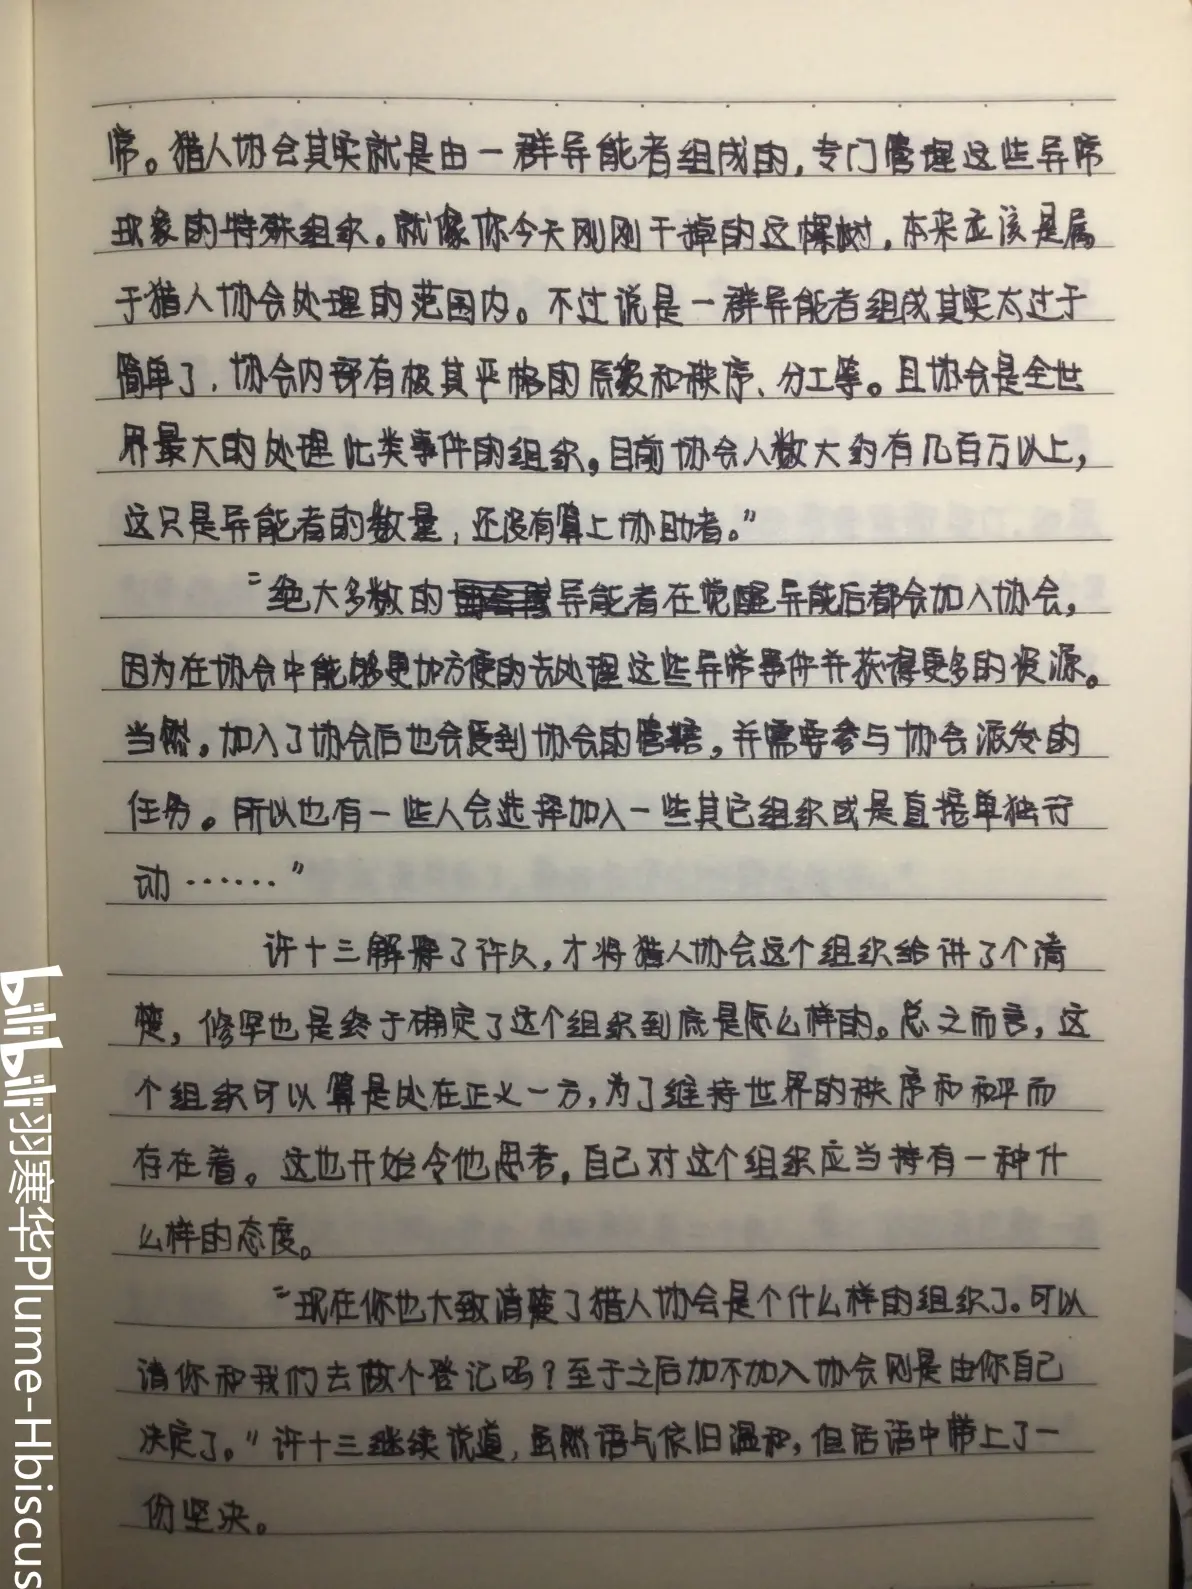 常。猎人协会其实就是由一群异能者组成的，专门管理这些异常
现象的特殊组织。就像你今天刚刚干掉的这棵树，本来应该是属
于猎人协会处理的范围内。不过说是一群异能者组成其实太过于
简单了，协会内部有极其严格的层级和秩序、分工等。且协会是全世
界最大的处理此类事件的组织。目前协会人数大约有几百万以上，
这只是异能者的数量，还没有算上协助者。”
“绝大多数的异能者在觉醒异能后都会加入协会，
因为在协会中能够更加方便的去处理这些异常事件并获得更多的资源。
当然，加入了协会后也会受到协会的管辖，并需要参与协会派发的
任务。所以也有一些人会选择加入一些其它组织或是直接单独行
动……”
许十三解释了许久，才将猎人协会这个组织给讲了个清
楚，修罕也是终于确定了这个组织到底是怎么样的。总之而言，这
个组织可以算是处在正义一方，为了维持世界的秩序和和平而
存在着。这也开始令他思考，自己对这个组织应当持有一种什
么样的态度。
“现在你也大致清楚了猎人协会是个什么样的组织了。可以
请你和我们去做个登记吗？至于之后加不加入协会则是由你自己
决定了。”许十三继续说道，虽然语气依旧温和，但话语中带上了一
份坚决。
bilibili 羽寒华Plume-Hbiscus